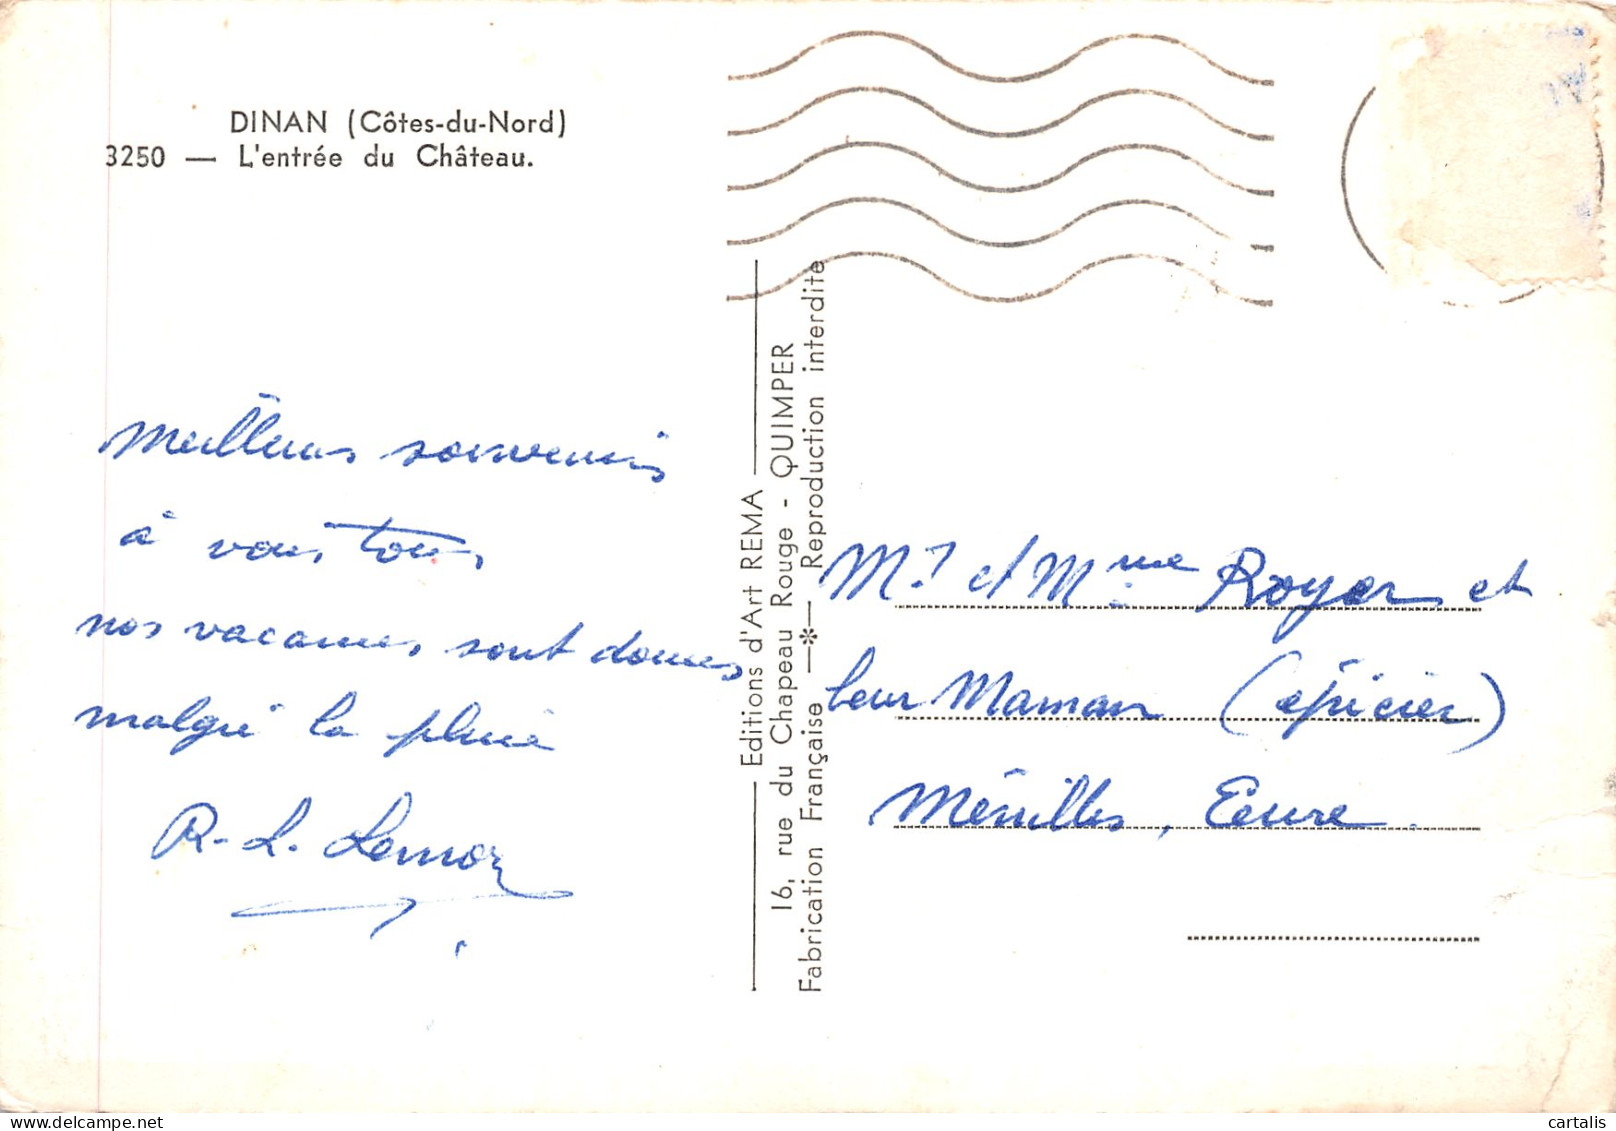 DINAN (Côtes-du-Nord)
3250 — L'entrée du Château.
Meilleurs souvenirs
à vous tous
nos vacances sont douces
malgré la pluie
R. L. Lemoz
Editions d'Art REMA
16, rue du Chapeau Rouge - QUIMPER
Fabrication Française —*— Reproduction interdite
Mr. et Mme Royer et
leur Maman (épicier)
Ménilles, Eure.
cartalis